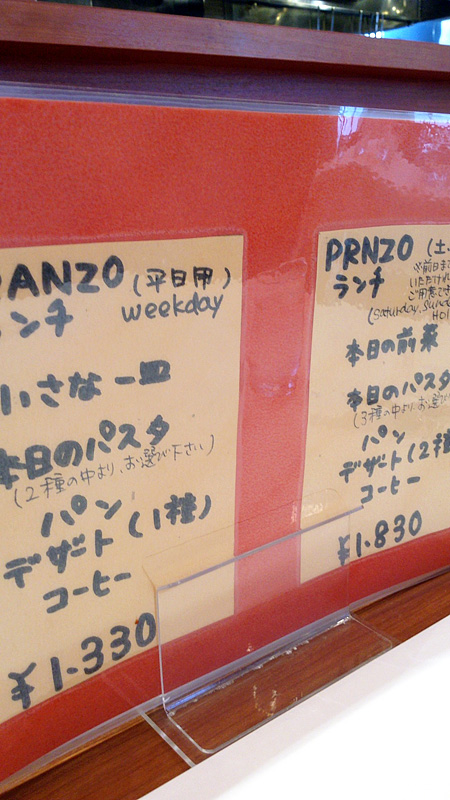 RANZO (平日用)
ンチ weekday
小さな一皿
本日のパスタ
(2種の中より、お選び下さい)
パン
デザート(1種)
コーヒー
¥1.330
PRNZO (土
ランチ
※前日ま
いただけ
ご用意でき
(Saturday.Sund
HOL
本日の前菜
本日のパスタ
(3種の中よりお選び
パン
デザート(2種
コーヒー
¥1.830